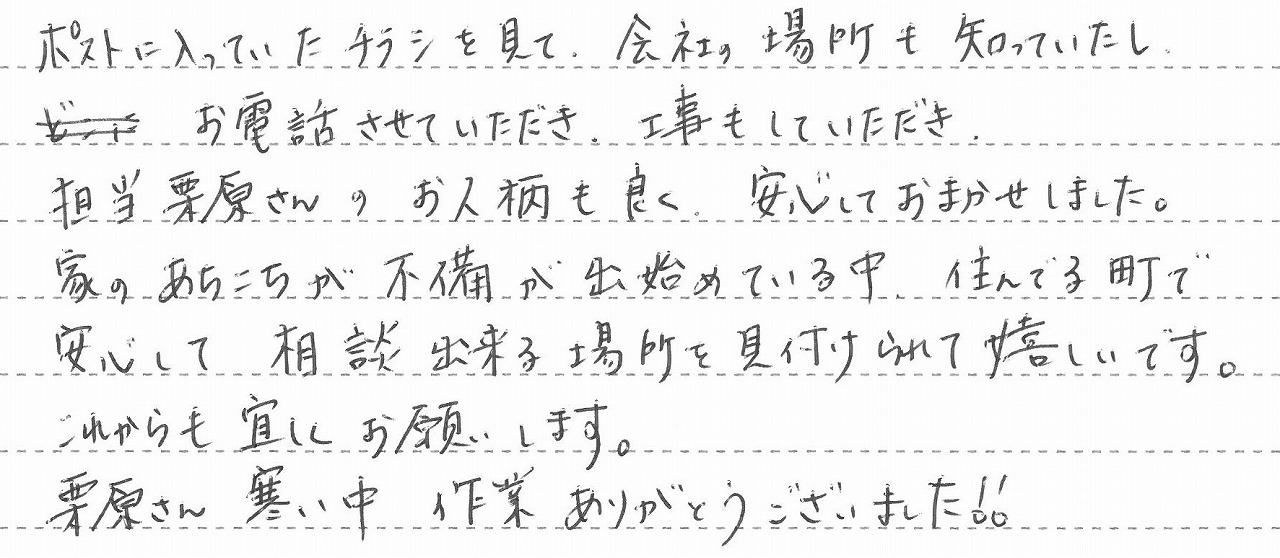 ポストに入っていたチラシを見て、会社の場所も知っていたし、
お電話させていただき、工事もしていただき、
担当栗原さんのお人柄も良く、安心しておまかせしました。
家のあちこちが不備が出始めている中、住んでる町で
安心して相談出来る場所を見付けられて嬉しいです。
これからも宜しくお願いします。
栗原さん寒い中作業ありがとうございました!!